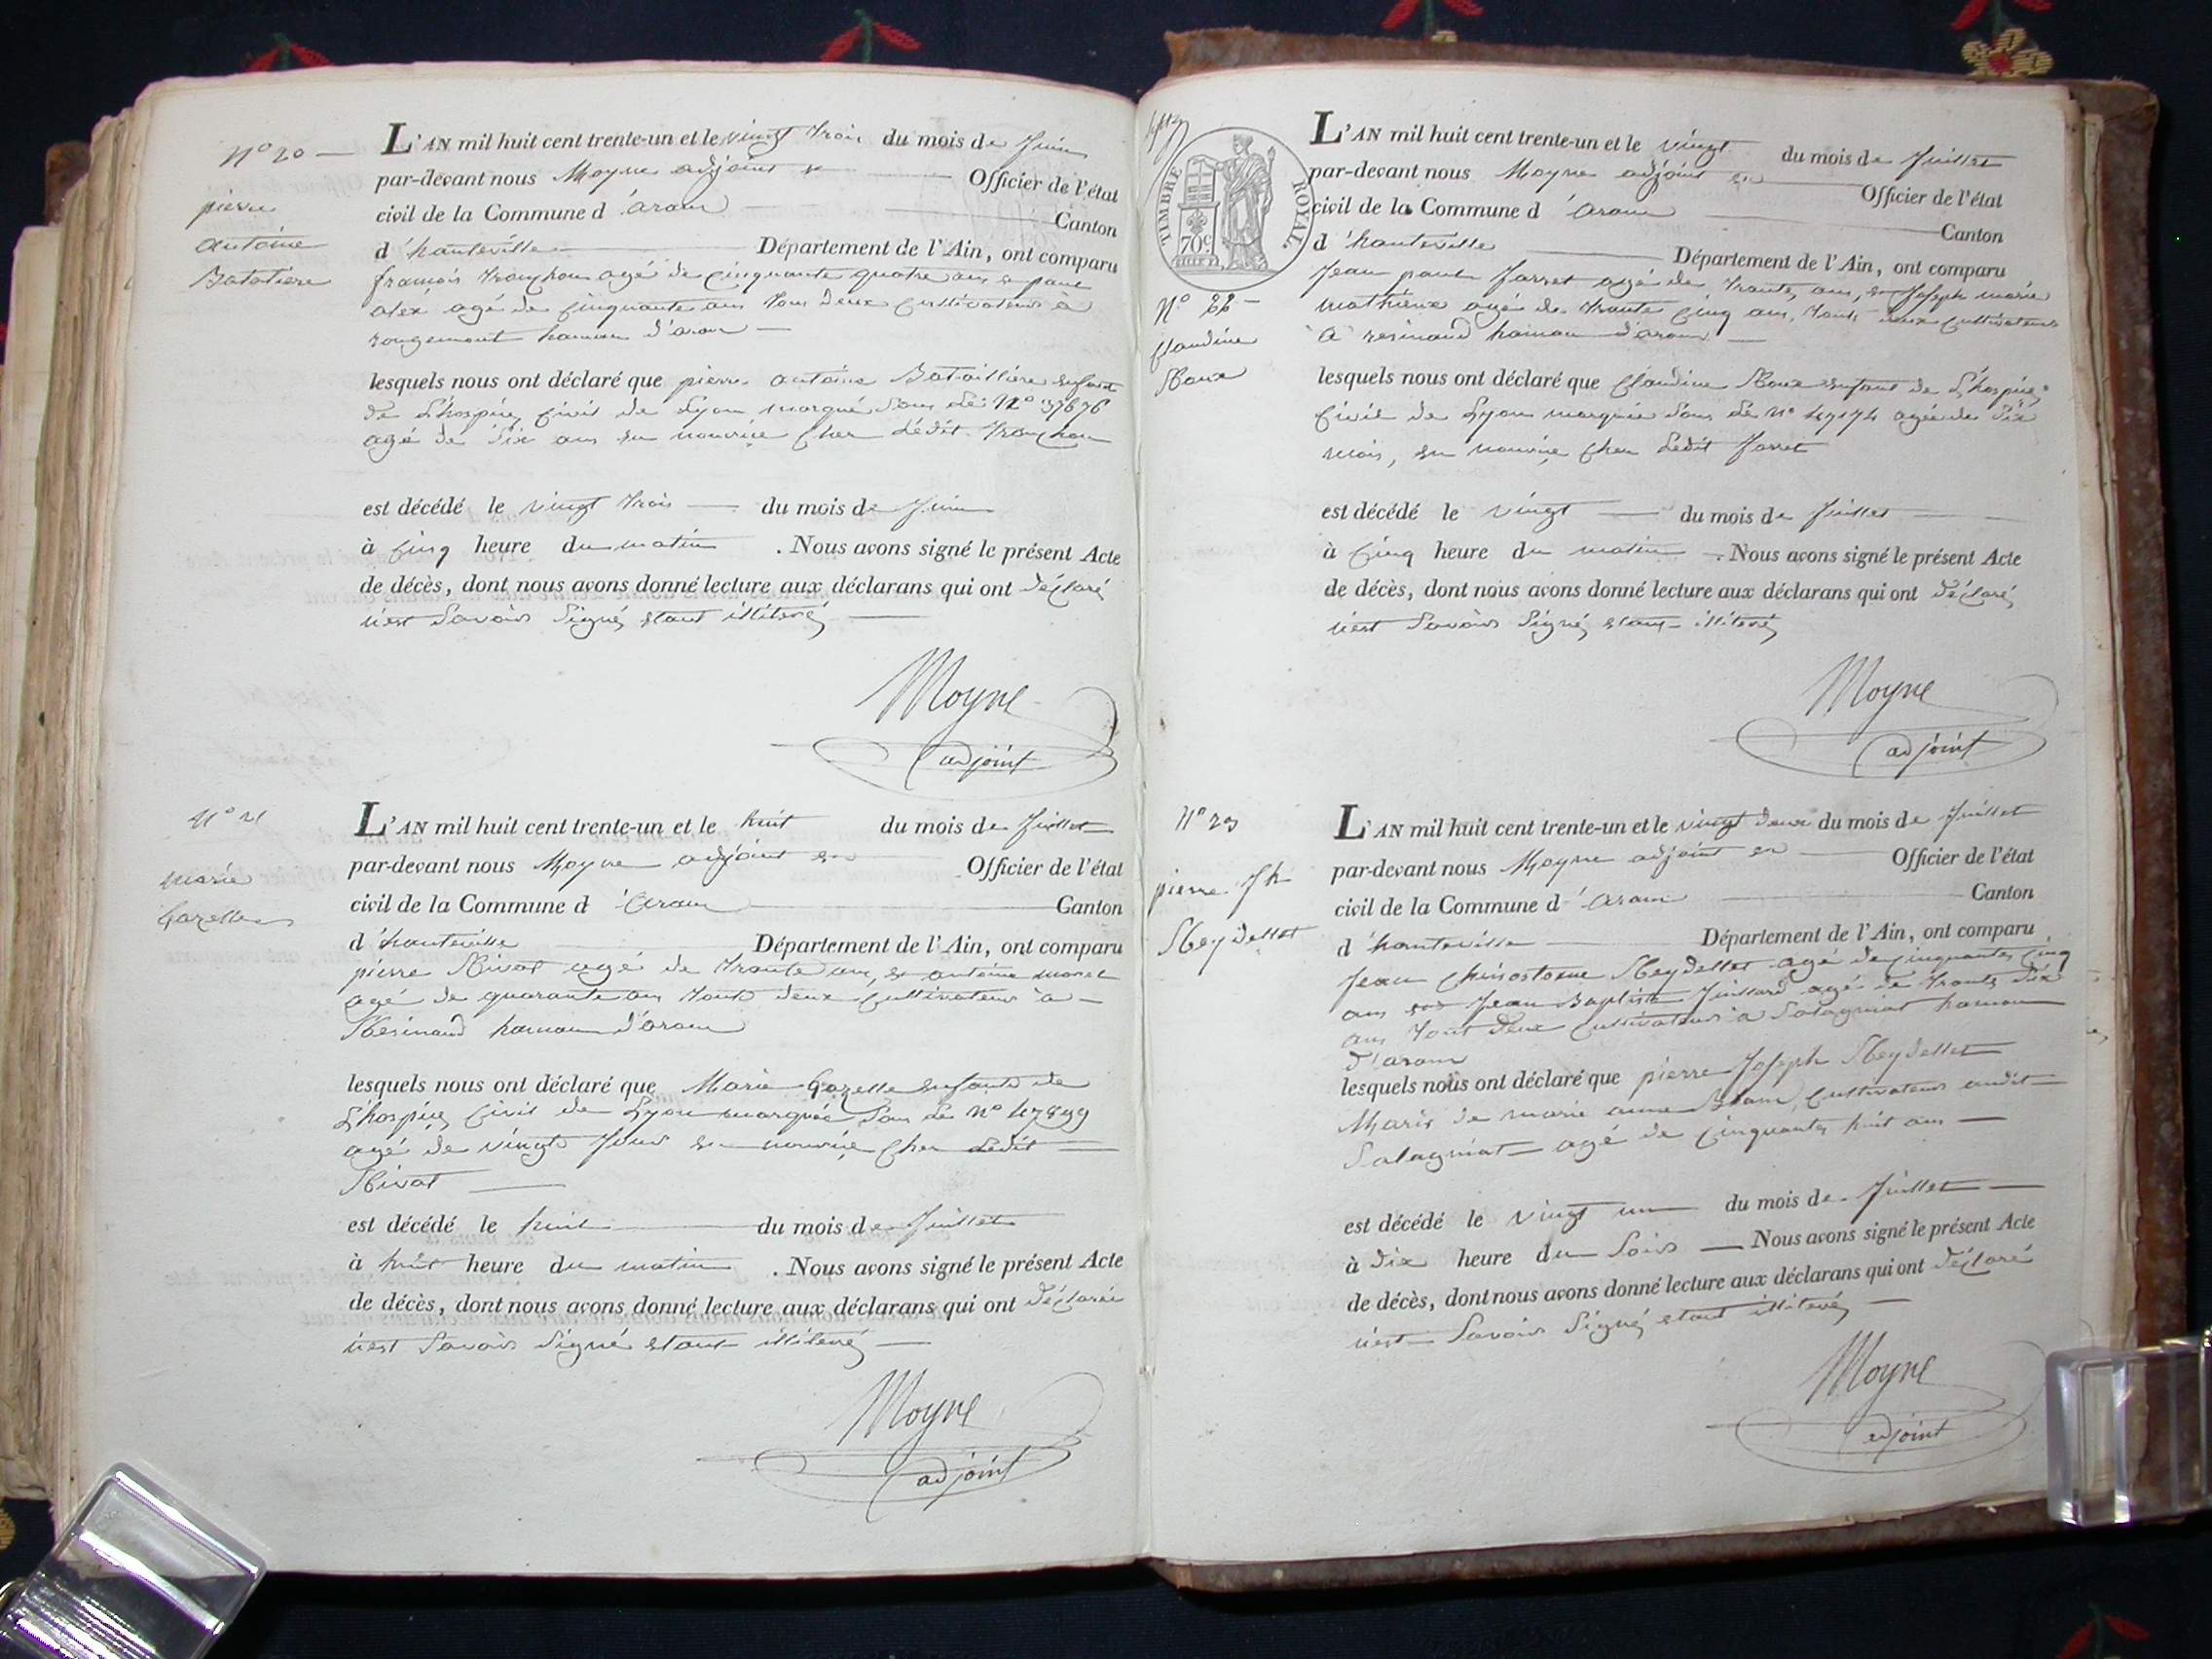 N° 20
pierre
antoine
Batatière
L'AN mil huit cent trente-un et le vingt trois du mois de Juin
par-devant nous Moyne adjoint Officier de l'état
civil de la Commune d'aranc Canton
d'hauteville Département de l'Ain, ont comparu
françois tronchon agé de cinquante quatre ans et paul
alex agé de cinquante ans tous deux cultivateurs à
rougemont hamau d'aranc
lesquels nous ont déclaré que pierre antoine Bataillière enfant
de L'hospice civil de Lyon marqué sous le N° 37676
agé de dix ans en nourrice cher ledit tronchon
est décédé le vingt trois du mois de Juin
à cinq heure du matin . Nous avons signé le présent Acte
de décès, dont nous avons donné lecture aux déclarans qui ont déclaré
n'est savoir signé étant illiteré
Moyne
adjoint
N° 21
marie
Gazelle
L'AN mil huit cent trente-un et le huit du mois de Juillet
par-devant nous Moyne adjoint en Officier de l'état
civil de la Commune d'aranc Canton
d'hauteville Département de l'Ain, ont comparu
pierre Rivat agé de trante ans, et antoine morel
agé de quarante ans touts deux cultivateurs à
Résinand hamau d'aranc
lesquels nous ont déclaré que Marie Gazelle enfants de
L'hospice civil de Lyon marquée sous le N° 47899
agé de vingts jours en nourrice cher ledit
Rivat
est décédé le huit du mois de Juillet
à huit heure du matin . Nous avons signé le présent Acte
de décès, dont nous avons donné lecture aux déclarans qui ont déclaré
n'est savoir signé étant illiteré
Moyne
adjoint
TIMBRE ROYAL
70c
N° 22
Claudine
Roux
L'AN mil huit cent trente-un et le vingt du mois de Juillet
par-devant nous Moyne adjoint en Officier de l'état
civil de la Commune d'aranc Canton
d'hauteville Département de l'Ain, ont comparu
Jean paul Jarret agé de trante ans, et Joseph marie
mathieux agé de trante cinq ans, touts deux cultivateurs
à résinand hamau d'aranc
lesquels nous ont déclaré que Claudine Roux enfant de L'hospice
civil de Lyon marquée sous le N° 47174 agée de dix
mois, en nourrice cher ledit Jarret
est décédé le vingt du mois de Juillet
à cinq heure du matin . Nous avons signé le présent Acte
de décès, dont nous avons donné lecture aux déclarans qui ont déclaré
n'est savoir signé étant illiteré
Moyne
adjoint
N° 23
pierre Jh
Reydellet
L'AN mil huit cent trente-un et le vingt deux du mois de Juillet
par-devant nous Moyne adjoint en Officier de l'état
civil de la Commune d'aranc Canton
d'hauteville Département de l'Ain, ont comparu
Jean Chrisostome Reydellet agé de cinquante cinq
ans Jean Baptiste Juillard agé de trante dix
ans tout deux cultivateurs à Salagniat hamau
d'aranc
lesquels nous ont déclaré que pierre Joseph Reydellet
Maris de marie anne cultivateurs audit
Salagniat agé de cinquante huit ans
est décédé le vingt un du mois de Juillet
à dix heure du soir Nous avons signé le présent Acte
de décès, dont nous avons donné lecture aux déclarans qui ont déclaré
n'est savoir signé étant illiteré
Moyne
adjoint